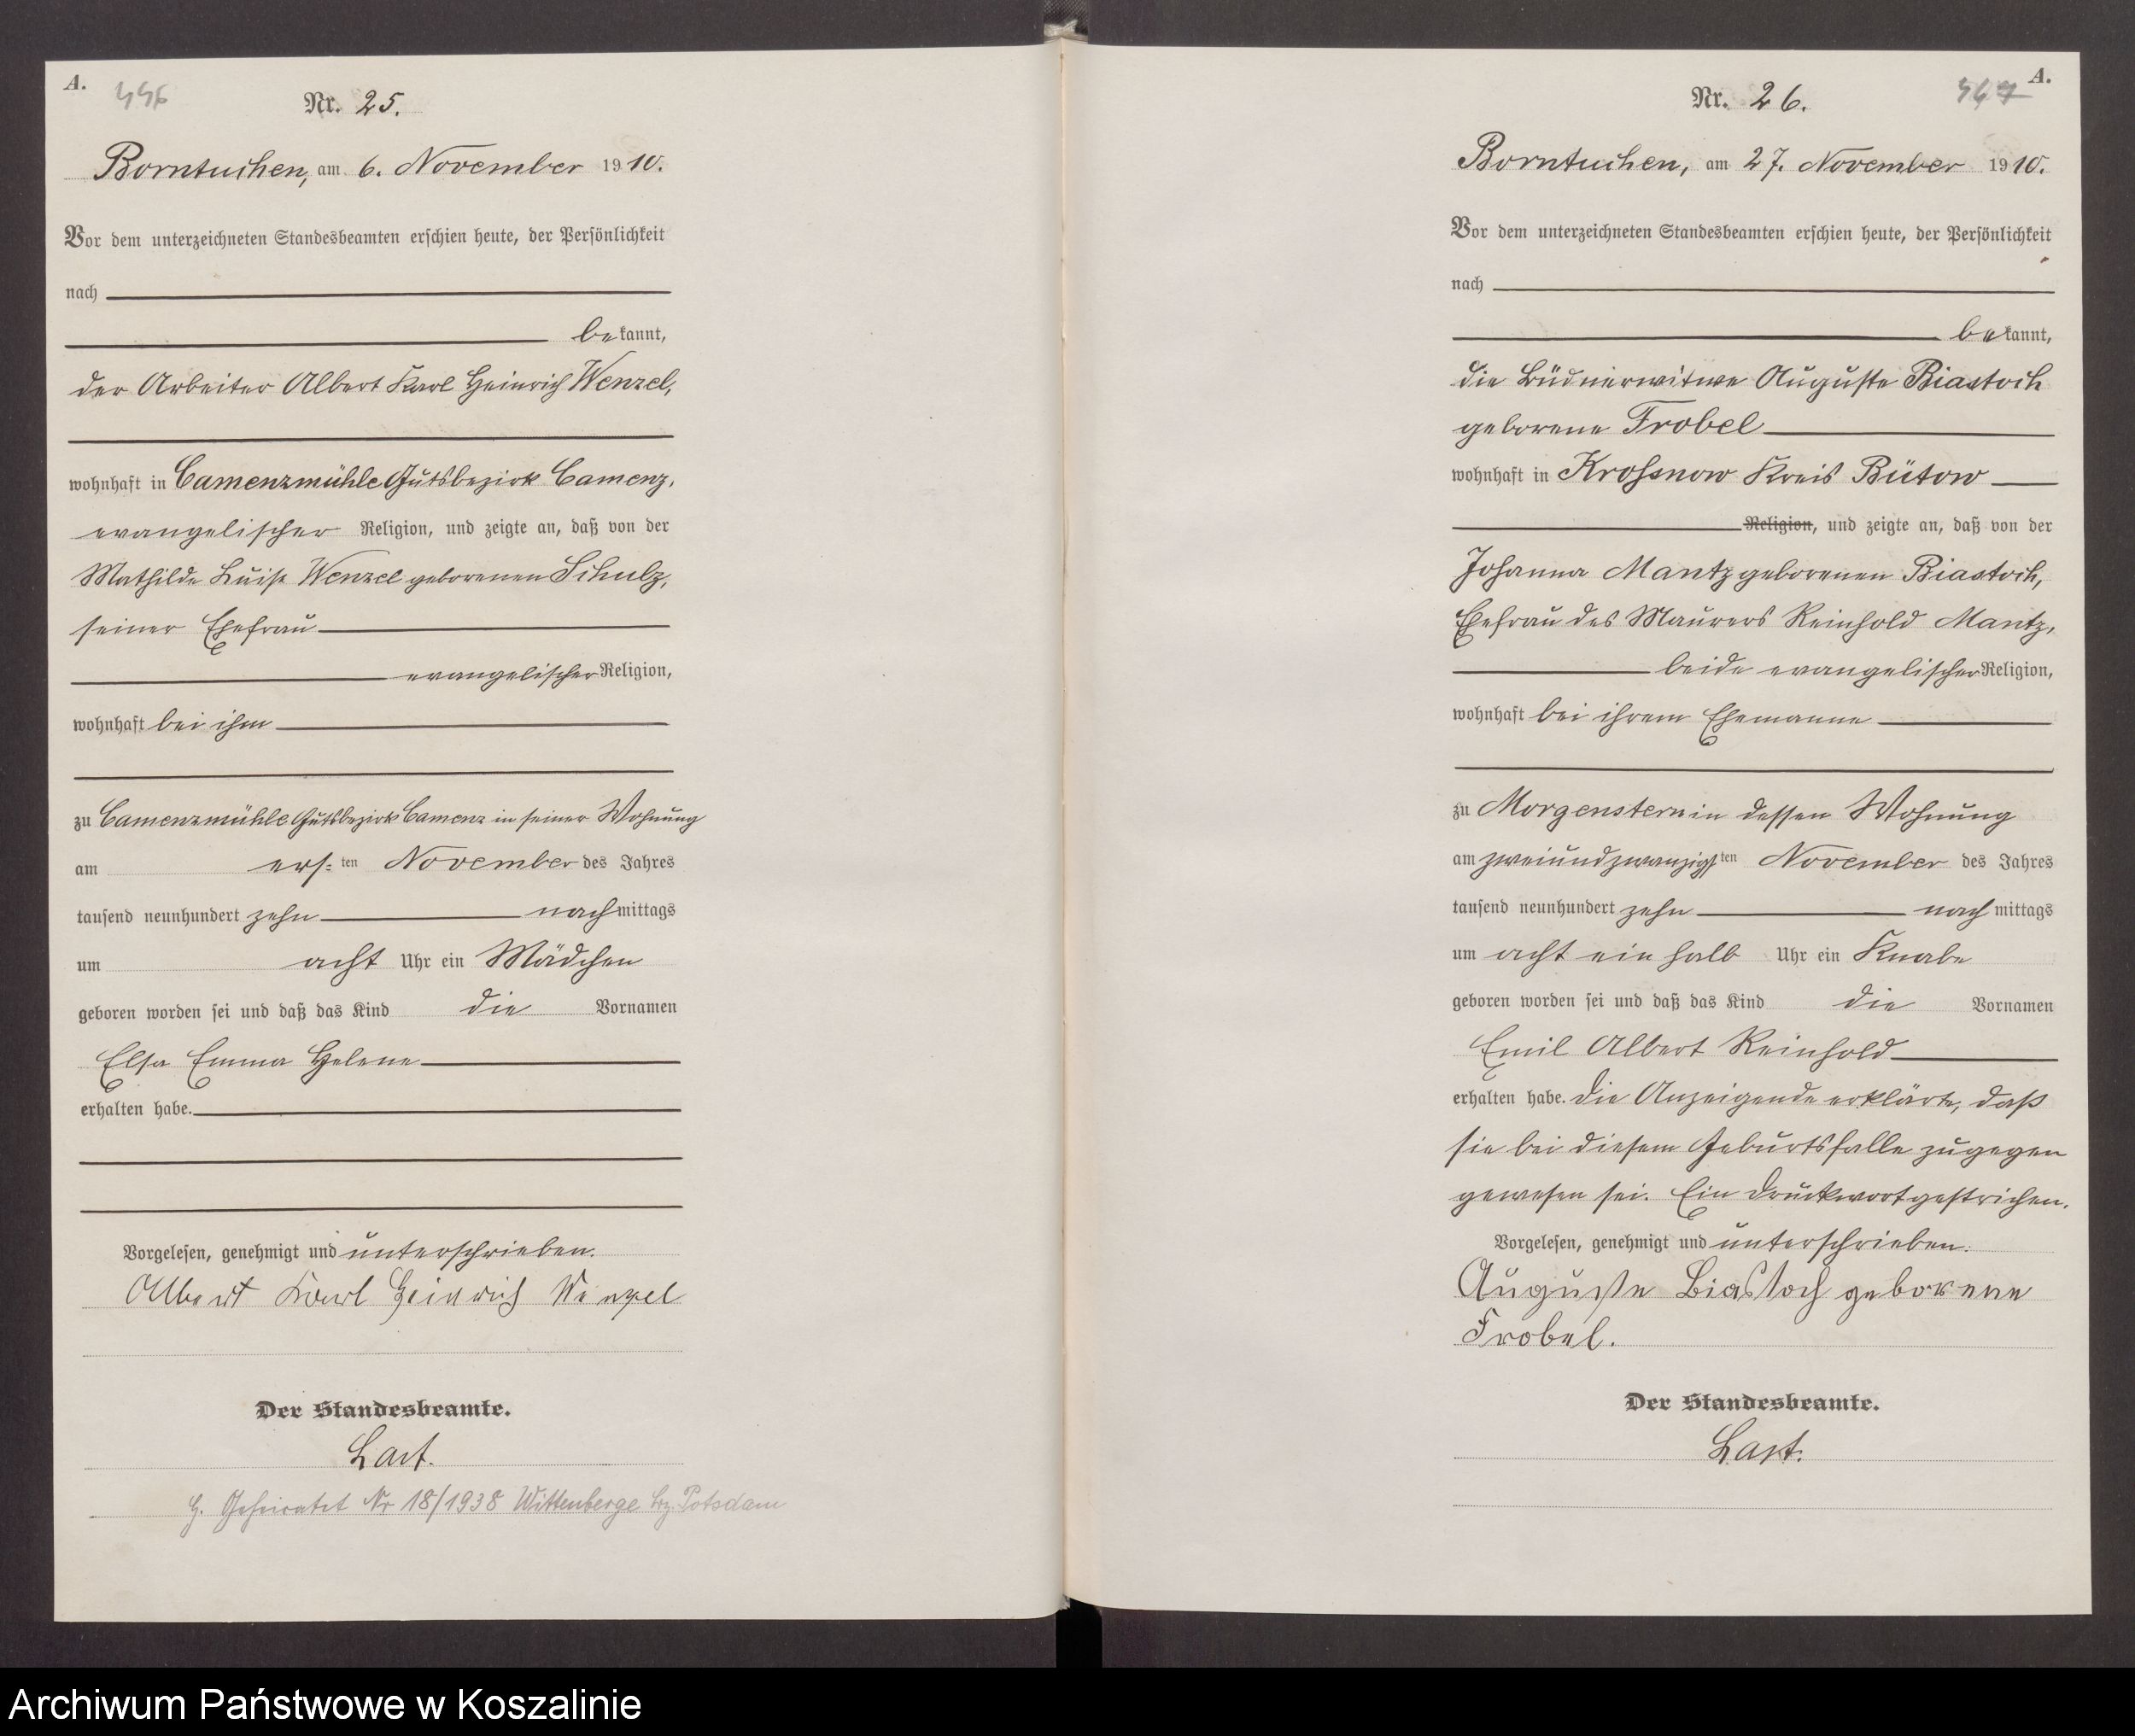 A.
446
Nr. 25.
Borntuchen, am 6. November 1910.
Vor dem unterzeichneten Standesbeamten erschien heute, der Persönlichkeit
nach
bekannt,
der Arbeiter Albert Karl Heinrich Wenzel,
wohnhaft in Camenzmühle Gutsbezirk Camenz,
evangelischer Religion, und zeigte an, daß von der
Mathilde Luise Wenzel geborenen Schulz,
seiner Ehefrau
evangelischer Religion,
wohnhaft bei ihm
zu Camenzmühle Gutsbezirk Camenz in seiner Wohnung
am ers:ten November des Jahres
tausend neunhundert zehn nachmittags
um acht Uhr ein Mädchen
geboren worden sei und daß das Kind die Vornamen
Elsa Emma Helene
erhalten habe.
Vorgelesen, genehmigt und unterschrieben.
Albert Karl Heinrich Wenzel
Der Standesbeamte.
Last.
G. Geheiratet Nr 18/1938 Wittenberge Bz. Potsdam
A.
447
Nr. 26.
Borntuchen, am 27. November 1910.
Vor dem unterzeichneten Standesbeamten erschien heute, der Persönlichkeit
nach
bekannt,
die Büdnerwitwe Auguste Biastoch
geborene Frobel
wohnhaft in Krossnow Kreis Bütow
Religion, und zeigte an, daß von der
Johanna Mantz geborenen Biastoch,
Ehefrau des Maurers Reinhold Mantz,
beide evangelischer Religion,
wohnhaft bei ihrem Ehemanne
zu Morgenstern in dessen Wohnung
am zweiundzwanzigsten November des Jahres
tausend neunhundert zehn nachmittags
um acht ein halb Uhr ein Knabe
geboren worden sei und daß das Kind die Vornamen
Emil Albert Reinhold
erhalten habe. Die Anzeigende erklärte, daß
sie bei diesem Geburtsfalle zugegen
gewesen sei. Ein Druckwort gestrichen.
Vorgelesen, genehmigt und unterschrieben.
Auguste Biastoch geborene
Frobel.
Der Standesbeamte.
Last.
Archiwum Państwowe w Koszalinie